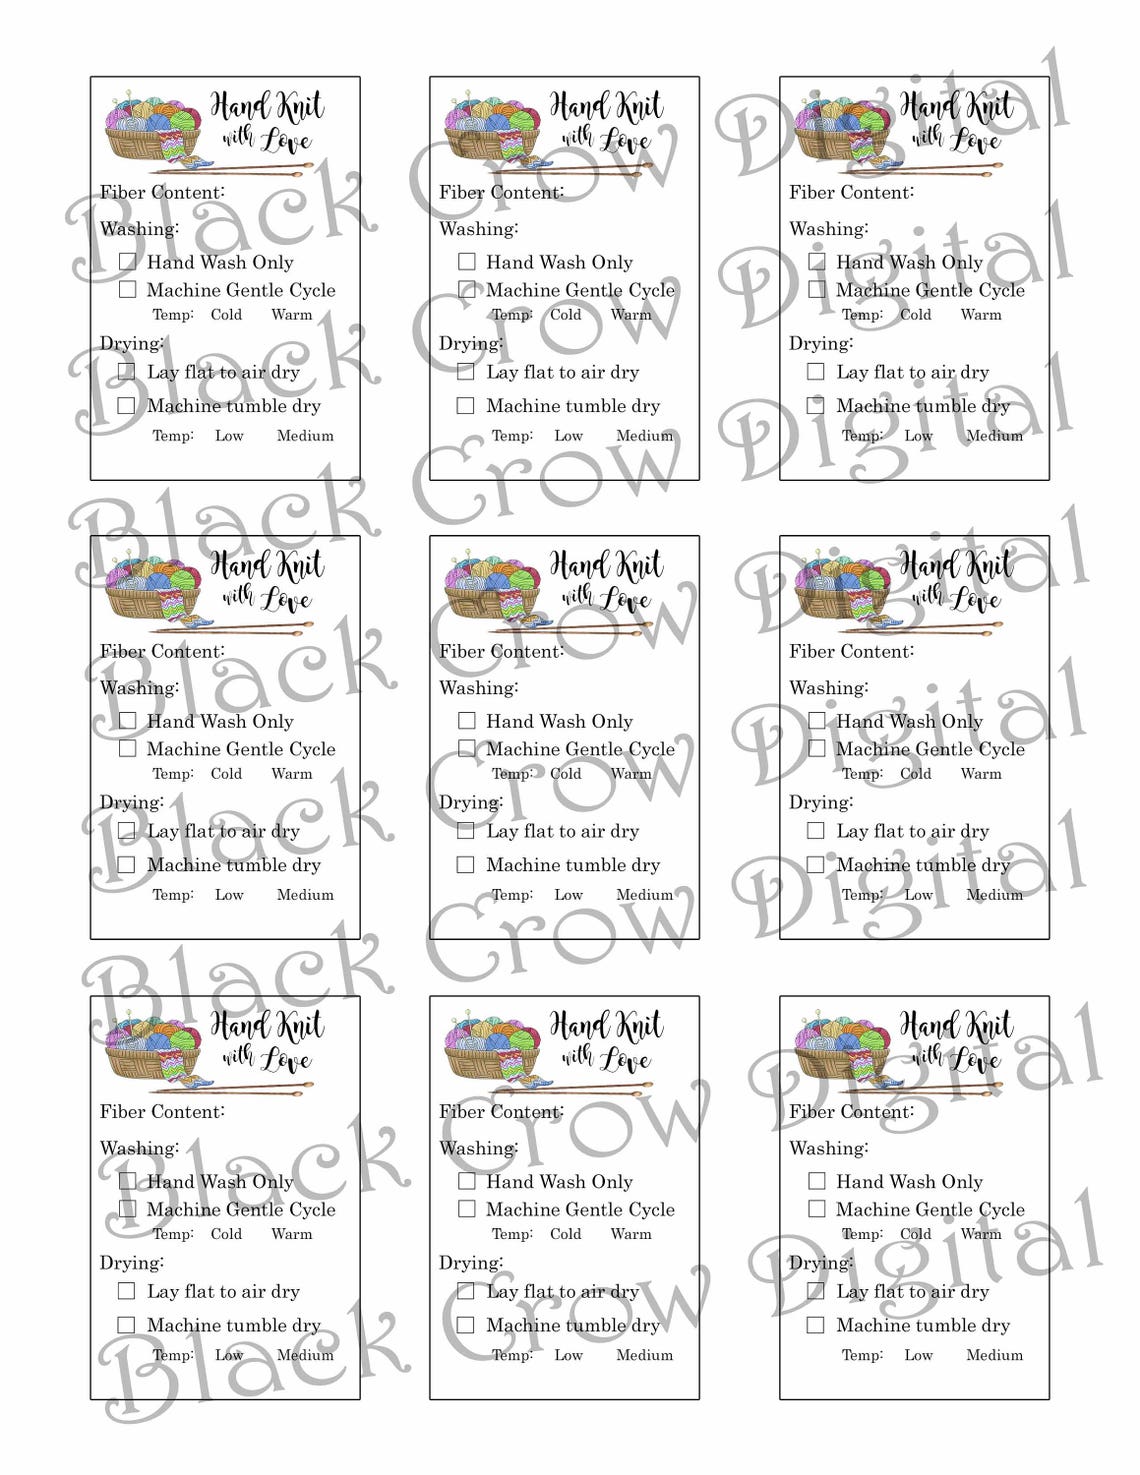 Hand Knit
with Love
Fiber Content:
Washing:
Hand Wash Only
Machine Gentle Cycle
Temp: Cold Warm
Drying:
Lay flat to air dry
Machine tumble dry
Temp: Low Medium
Hand Knit
with Love
Fiber Content:
Washing:
Hand Wash Only
Machine Gentle Cycle
Temp: Cold Warm
Drying:
Lay flat to air dry
Machine tumble dry
Temp: Low Medium
Hand Knit
with Love
Fiber Content:
Washing:
Hand Wash Only
Machine Gentle Cycle
Temp: Cold Warm
Drying:
Lay flat to air dry
Machine tumble dry
Temp: Low Medium
Hand Knit
with Love
Fiber Content:
Washing:
Hand Wash Only
Machine Gentle Cycle
Temp: Cold Warm
Drying:
Lay flat to air dry
Machine tumble dry
Temp: Low Medium
Hand Knit
with Love
Fiber Content:
Washing:
Hand Wash Only
Machine Gentle Cycle
Temp: Cold Warm
Drying:
Lay flat to air dry
Machine tumble dry
Temp: Low Medium
Hand Knit
with Love
Fiber Content:
Washing:
Hand Wash Only
Machine Gentle Cycle
Temp: Cold Warm
Drying:
Lay flat to air dry
Machine tumble dry
Temp: Low Medium
Hand Knit
with Love
Fiber Content:
Washing:
Hand Wash Only
Machine Gentle Cycle
Temp: Cold Warm
Drying:
Lay flat to air dry
Machine tumble dry
Temp: Low Medium
Hand Knit
with Love
Fiber Content:
Washing:
Hand Wash Only
Machine Gentle Cycle
Temp: Cold Warm
Drying:
Lay flat to air dry
Machine tumble dry
Temp: Low Medium
Hand Knit
with Love
Fiber Content:
Washing:
Hand Wash Only
Machine Gentle Cycle
Temp: Cold Warm
Drying:
Lay flat to air dry
Machine tumble dry
Temp: Low Medium
Black Crow Digital
Black Crow Digital
Black Crow Digital
Black Crow Digital
Black Crow Digital
Black Crow Digital
Black Crow Digital
Black Crow Digital